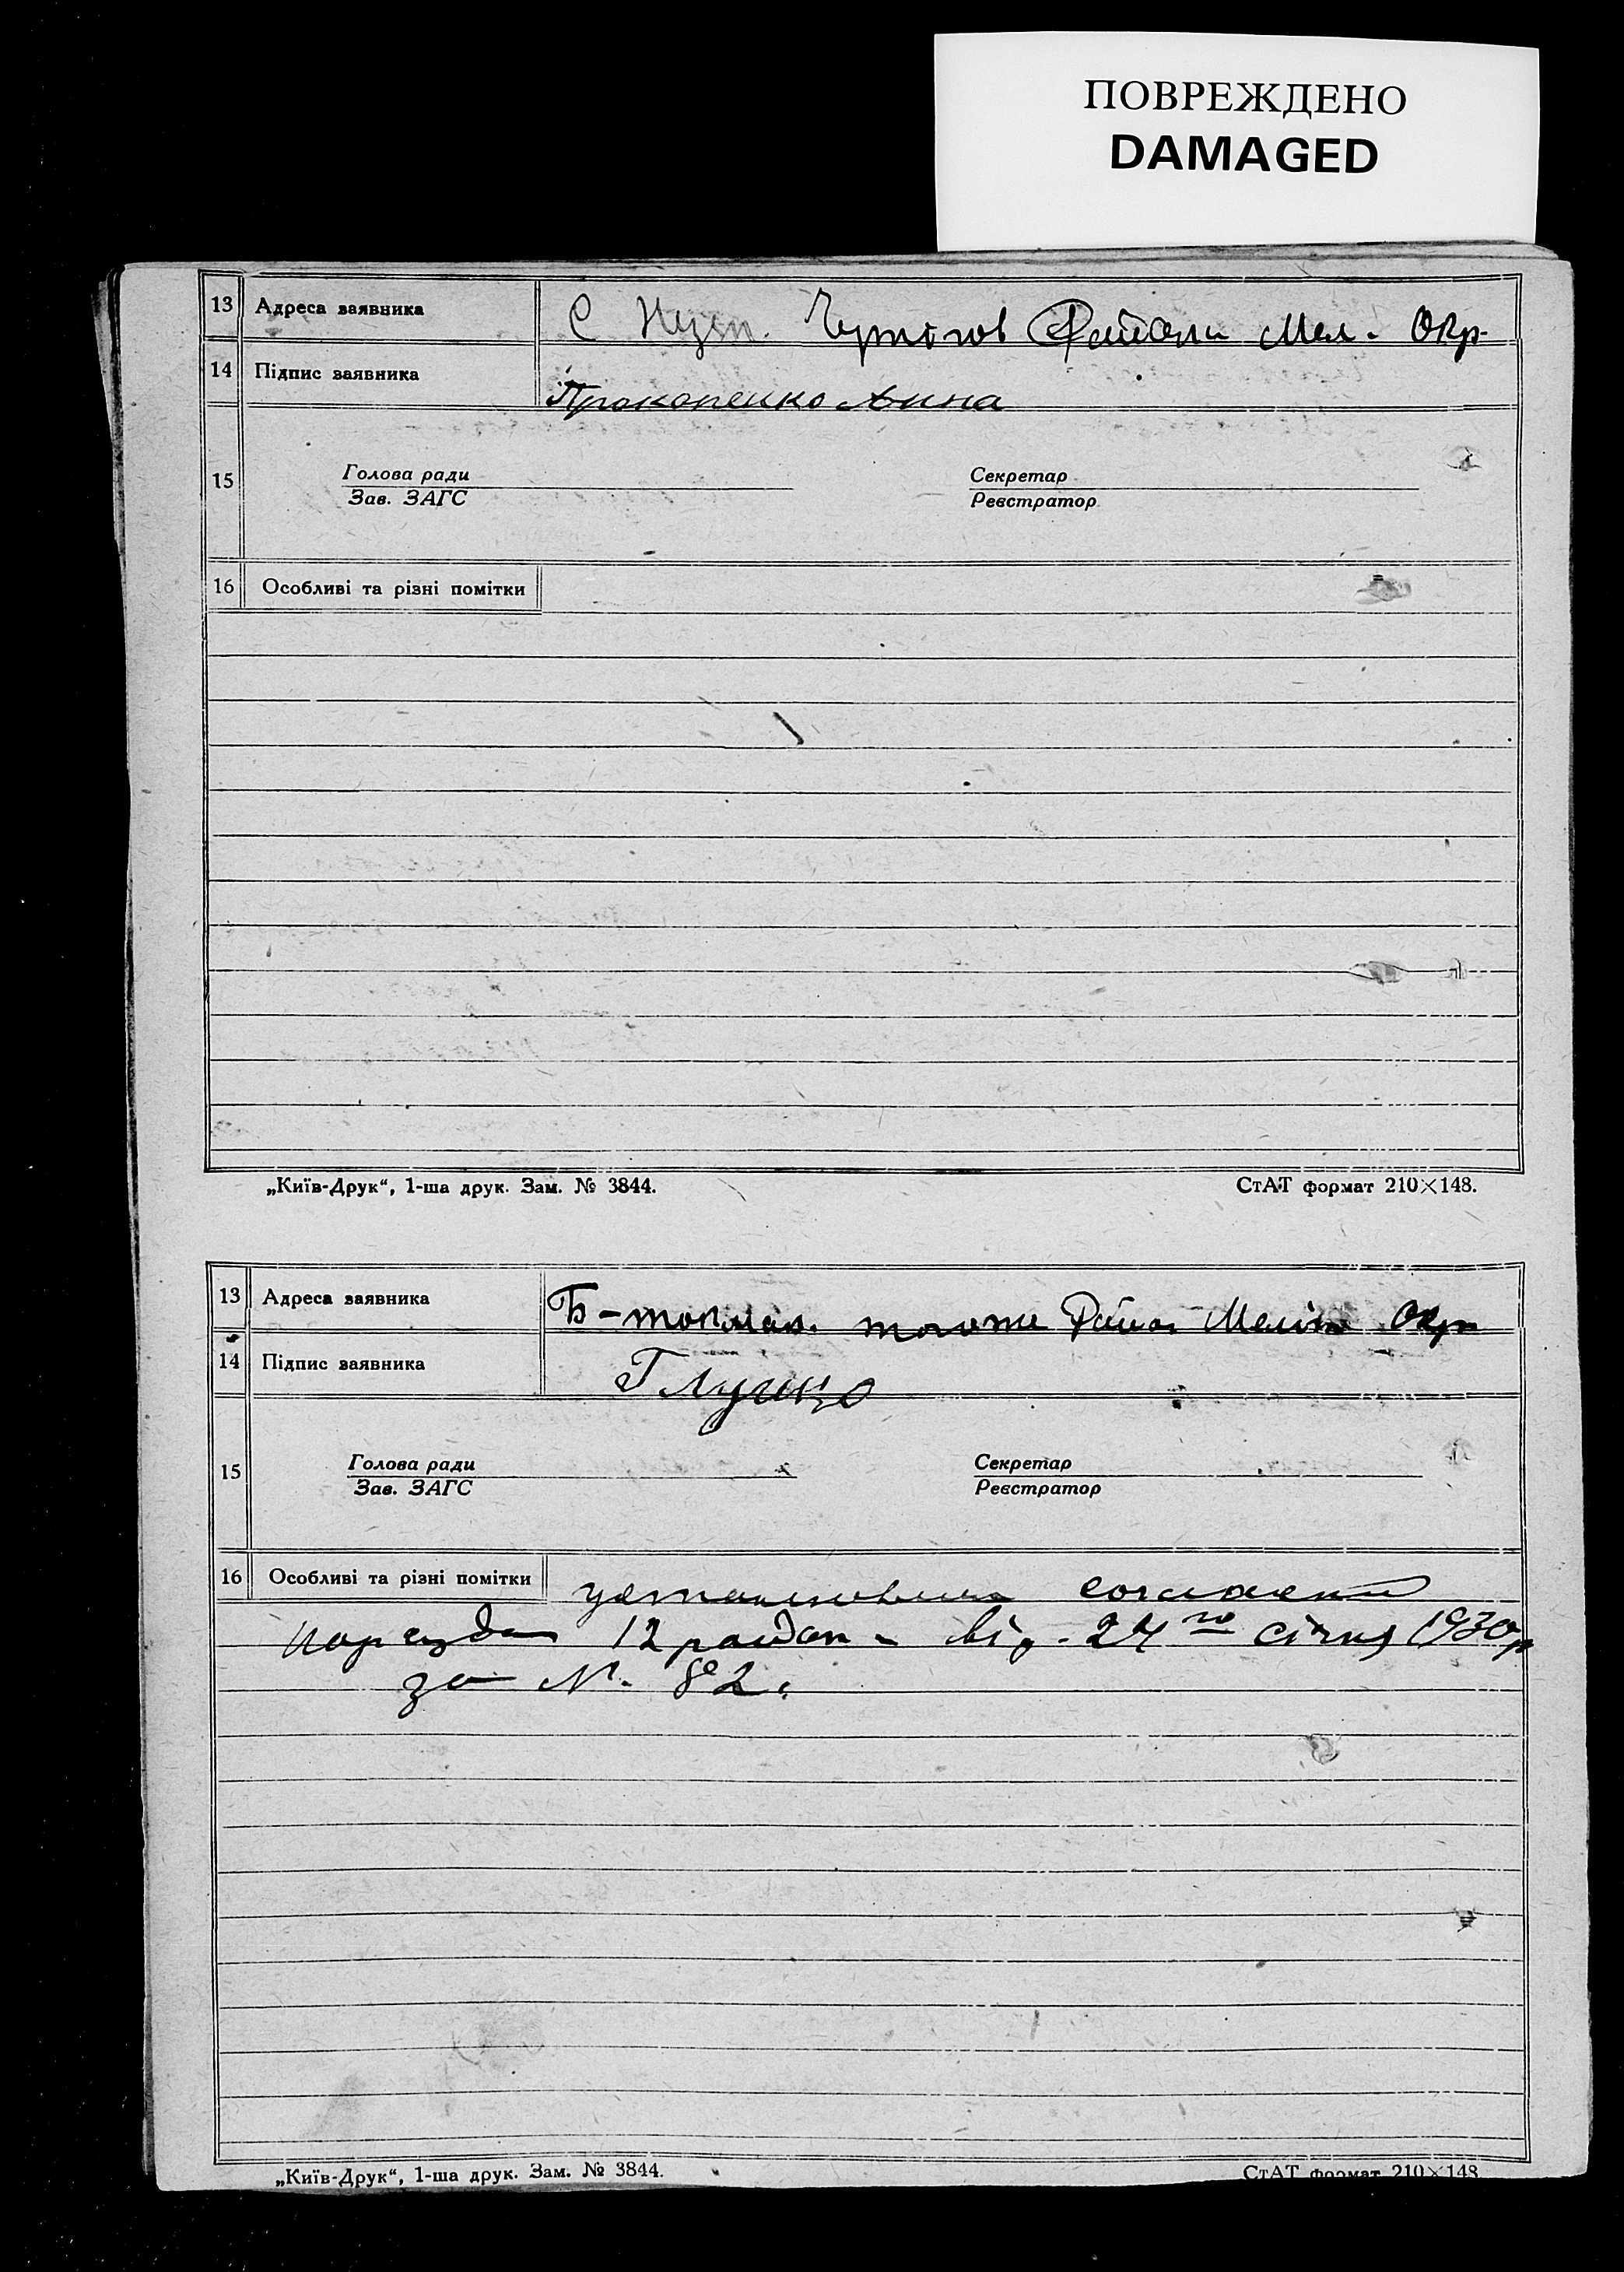 ПОВРЕЖДЕНО
DAMAGED
13 Адреса заявника С Мел. Окр.
14 Підпис заявника Прокопенко Анна
15 Голова ради Секретар
Зав. ЗАГС Реєстратор
16 Особливі та різні помітки
„Київ-Друк“, 1-ша друк. Зам. № 3844. СтАТ формат 210×148.
13 Адреса заявника Б-токмак. Окр
14 Підпис заявника
15 Голова ради Секретар
Зав. ЗАГС Реєстратор
16 Особливі та різні помітки
12 від. 24го січня 1930р
за №. 82.
„Київ-Друк“, 1-ша друк. Зам. № 3844. СтАТ формат 210×148.